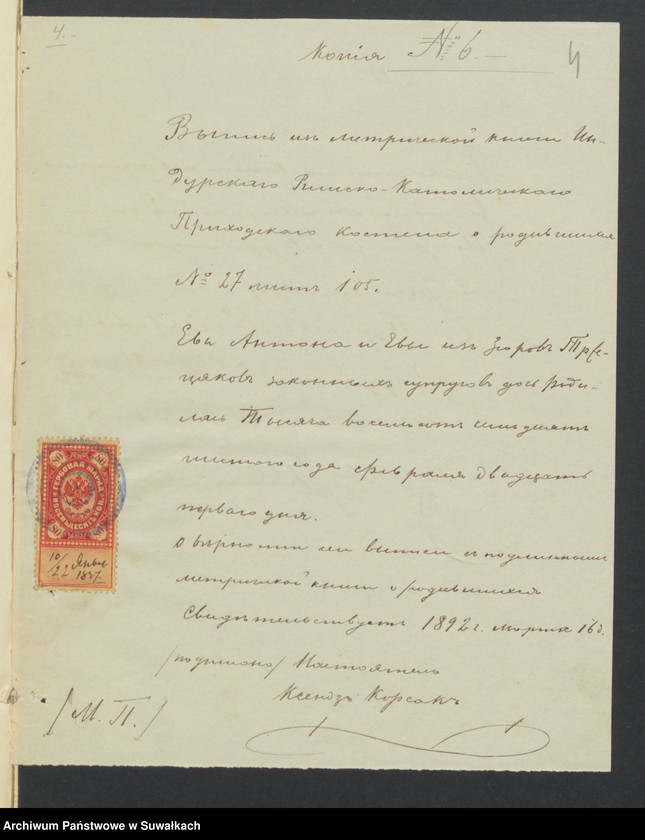 4.-
Копія № 6.
4
Выпись изъ метрической книги Ин-
дурскаго Римско-Католическаго
Приходского костела о родившихся
№ 27 листъ 105.
Ева Антона и Евы изъ Зюровъ Тре-
цяковъ законныхъ супруговъ дочь роди-
лась Тысяча восемьсотъ семьдесятъ
шестого года февраля двадцать
перваго дня.
О вѣрности сей выписи съ подлинною
метрической книги о родившихся
Свидѣтельствуетъ 1892 г. Марта 16 д.
/подписано/ Настоятель
Ксендзъ Корсакъ
/М. П./
80 80
ГЕРБОВАЯ МАРКА
ВОСЕМЬДЕСЯТЪ КОП.
80 80
10/22
1897.
Archiwum Państwowe w Suwałkach